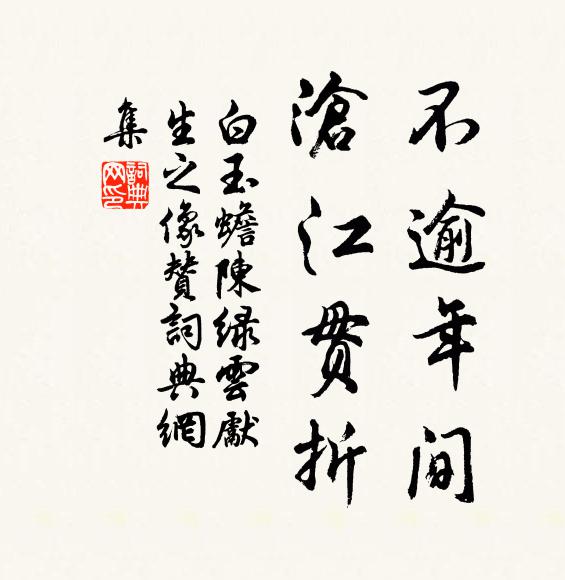 不逾年间
滄江貫折
白玉蟾陳绿雲獻
生之像赞詞典網
集
詞典
网印